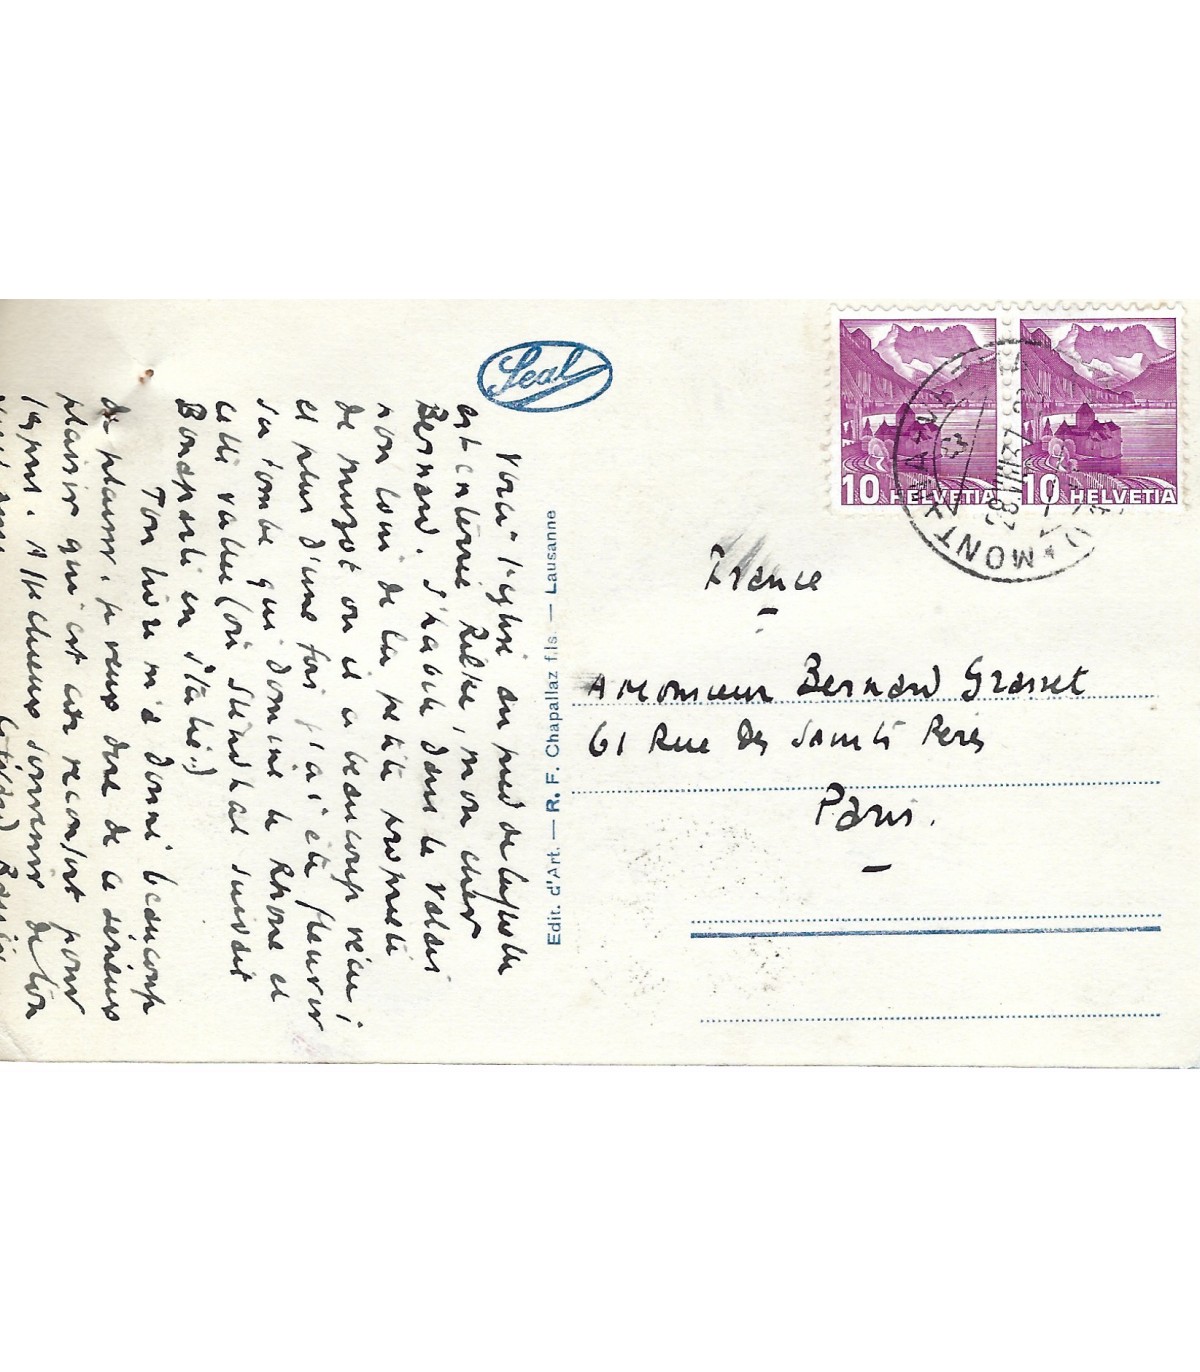 Voici l'église au pied de laquelle
est enterré Rilke, mon cher
Bernard. J'habite dans le Valais
non loin de la petite propriété
de Muzot où il a beaucoup vécu ;
et plus d'une fois j'ai été fleurir
sa tombe qui domine le Rhône et
cette vallée (où Stendhal suivait
Bonaparte en Italie.)
Ton livre m'a donné beaucoup
de plaisir, je veux dire de ce sérieux
plaisir qui est un réconfort pour
l'esprit. Affectueux souvenir de ton
Seal
Edit. d'Art. — R. F. Chapallaz fils. — Lausanne
10 HELVETIA
10 HELVETIA
MONTANA-V
28.VIII.37
France
A Monsieur Bernard Grasset
61 Rue des Saints Pères
Paris.